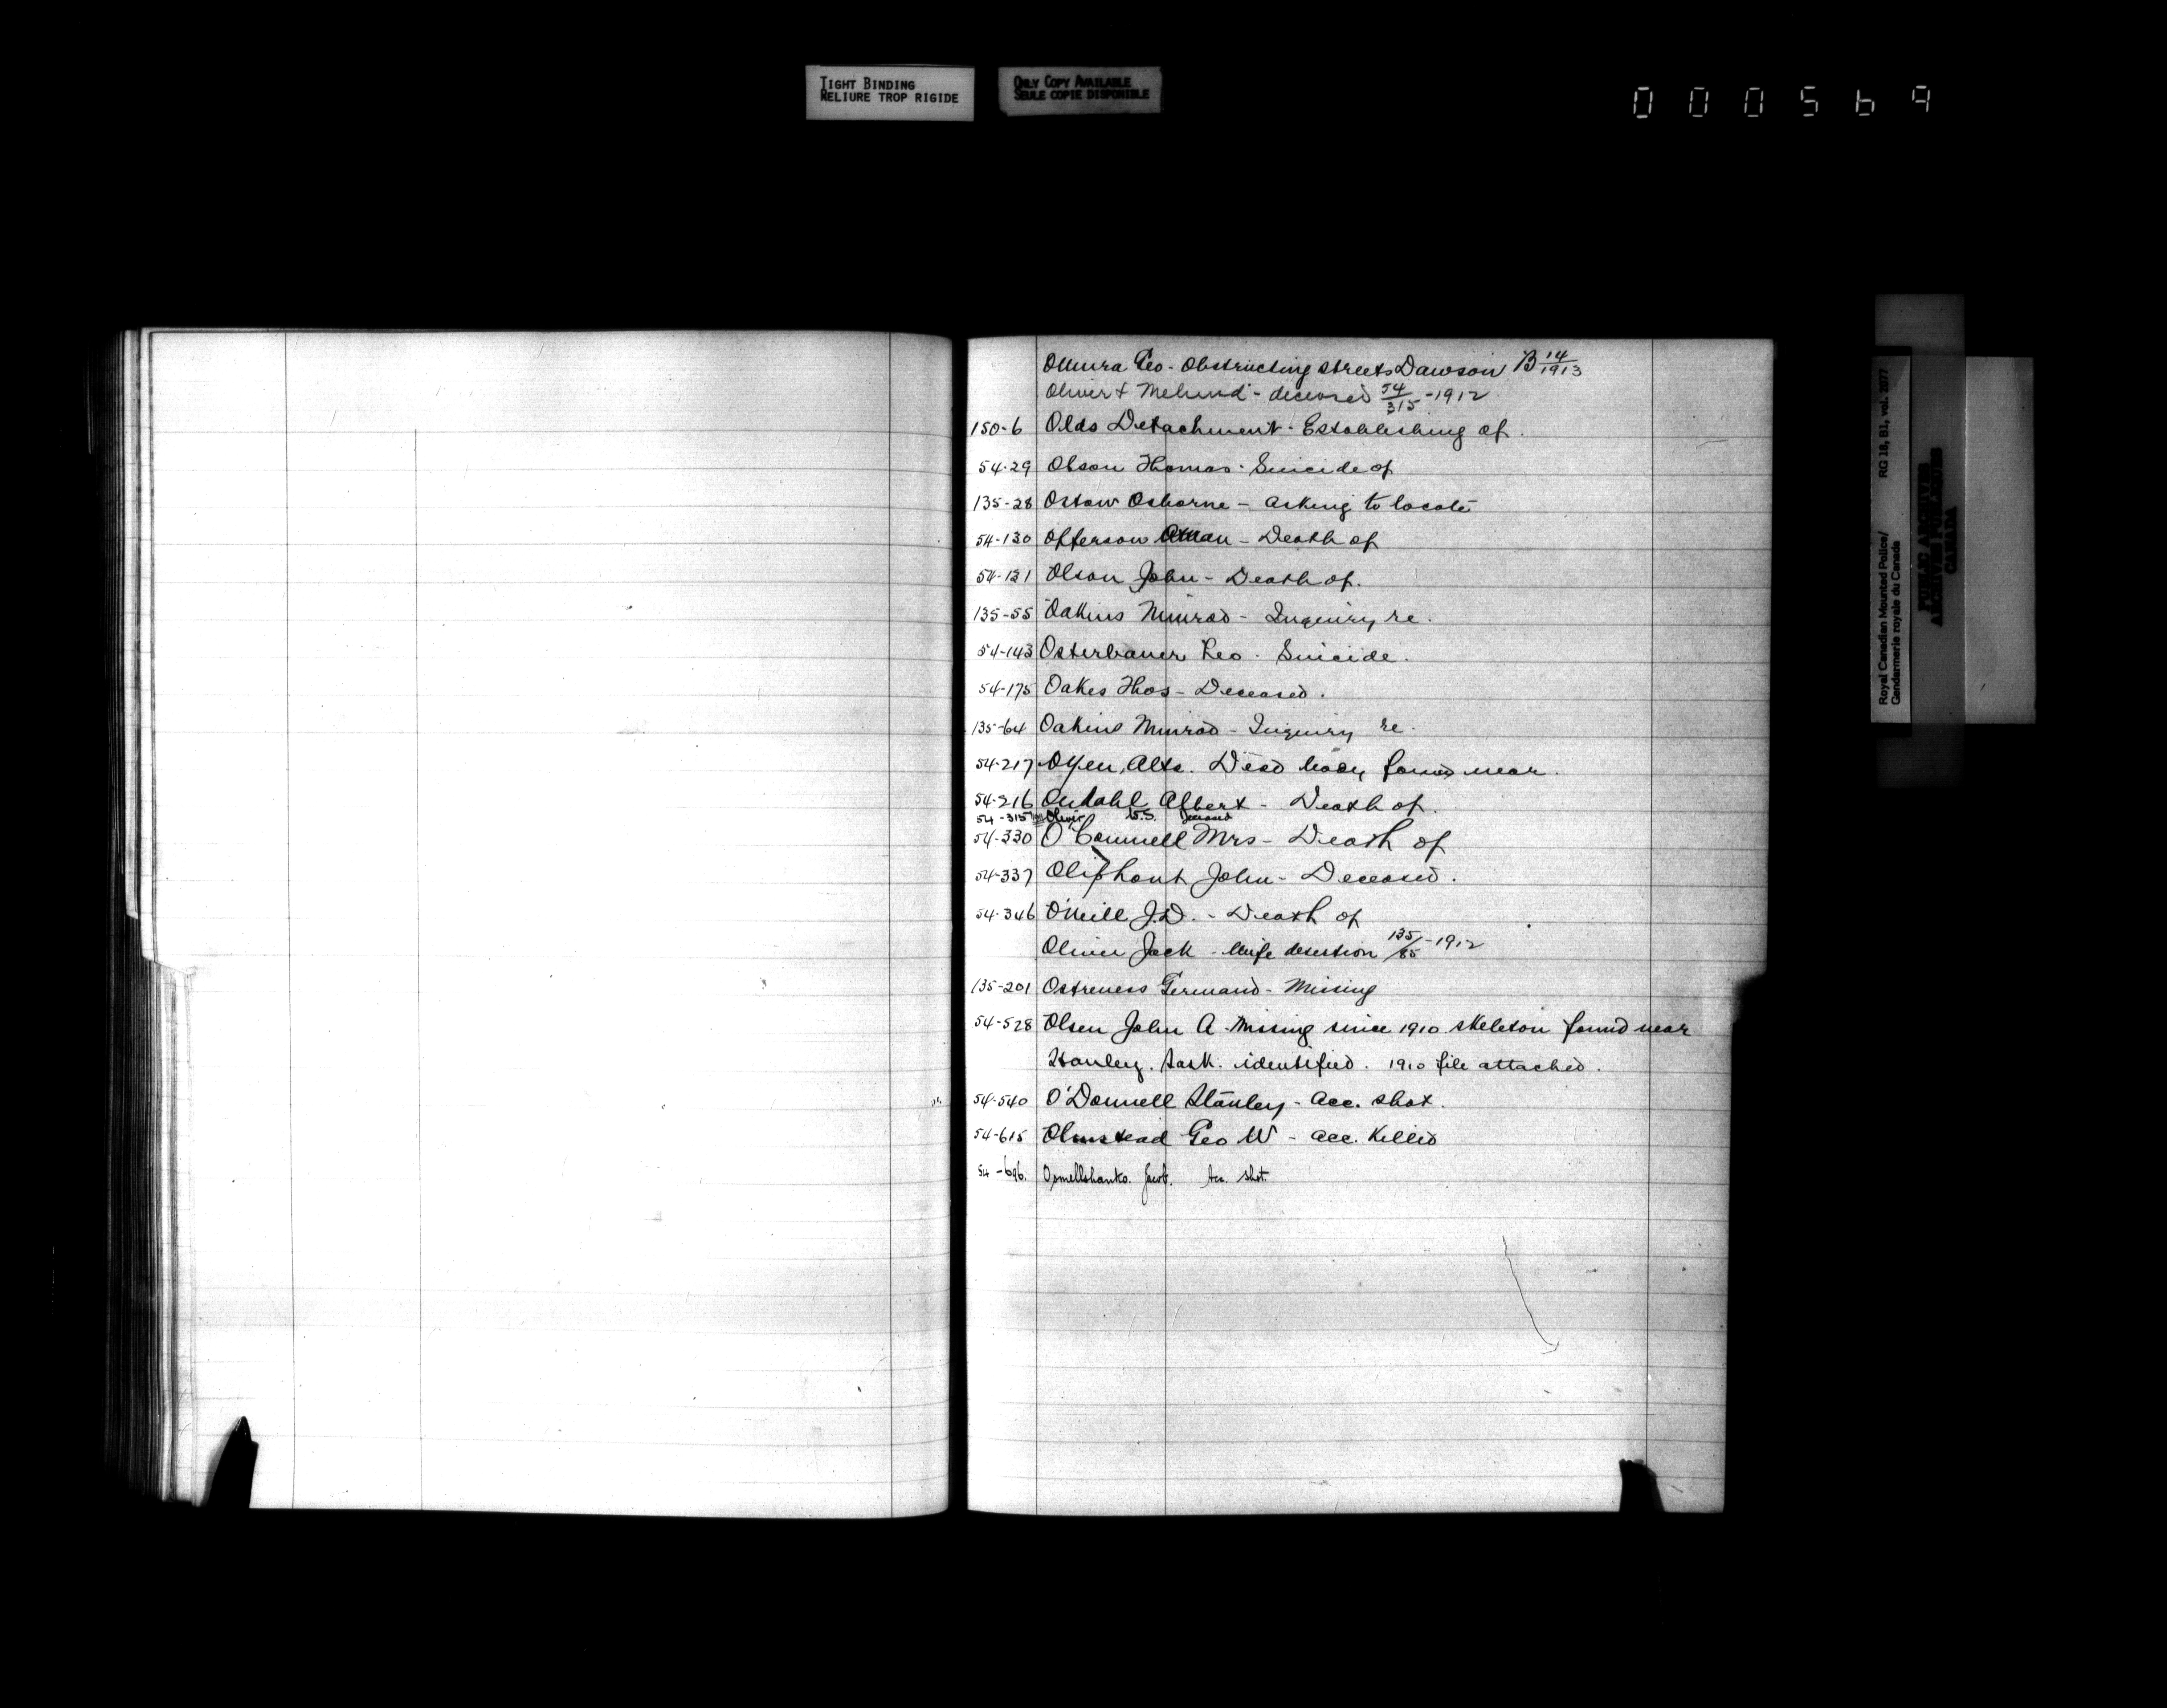 TIGHT BINDING
RELIURE TROP RIGIDE
ONLY COPY AVAILABLE
SEULE COPIE DISPONIBLE
000569
Omura Geo - Obstructing streets Dawson B 14/1913
Oliver & - deceased 54/315 - 1912
150-6 Olds Detachment - Establishing of.
54-29 Olson Thomas - Suicide of
135-28 Ostow Osborne - asking to locate
54-130 Offerson - Death of
54-131 Olson John - Death of.
135-55 Oakins Nimrod - Inquiry re.
54-143 Osterbauer Leo - Suicide.
54-175 Oakes Thos - Deceased.
135-64 Oakins Nimrod - Inquiry re.
54-217 Oyen, Alta. Dead body found near.
54-216 Albert - Death of.
54-315 Oliver W.S. Deceased
54-330 O'Connell Mrs - Death of
54-337 Oliphant John - Deceased.
54-346 O'Neill J.D. - Death of
Oliver Jack - Wife desertion 135/85 - 1912
135-201 Ostreness Germand - Missing
54-528 Olsen John A - Missing since 1910. Skeleton found near
Hanley. Sask. identified. 1910 file attached.
54-540 O'Donnell Stanley - Acc. shot.
54-615 Olmstead Geo W - acc. Killed
54-696. Jacob. Acc. Shot.
Royal Canadian Mounted Police/ RG 18, B1, vol. 2077
Gendarmerie royale du Canada
PUBLIC ARCHIVES
ARCHIVES PUBLIQUES
CANADA